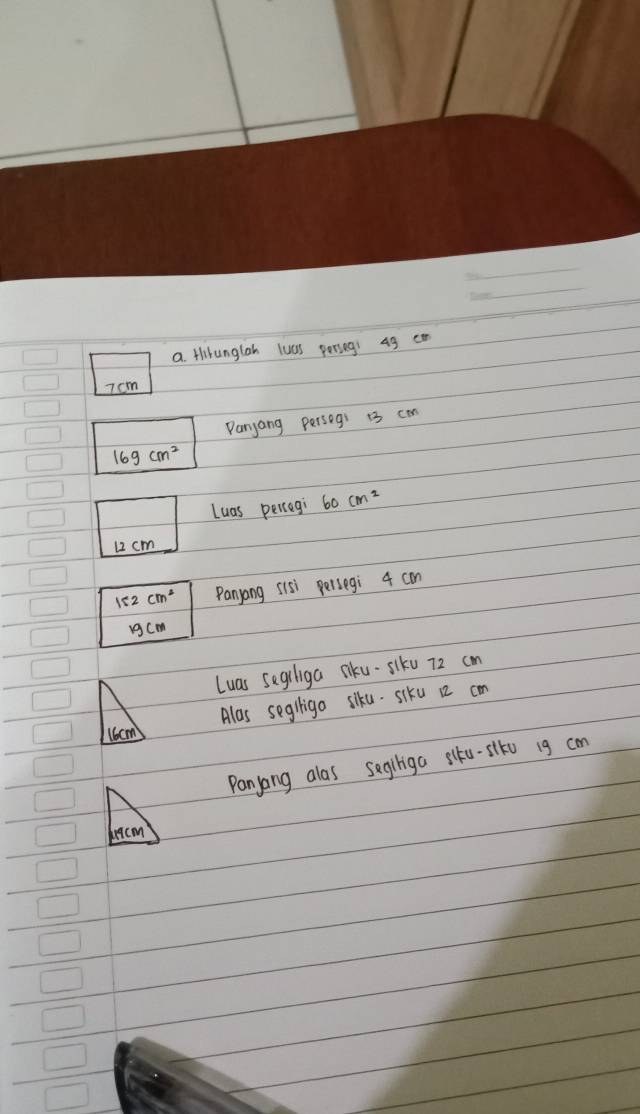 a. Hitunglah luas persegi 49 cm
7cm
Panjang persegi 13 cm
169 cm²
Luas persegi 60 cm²
12 cm
152 cm²
Panjang sisi persegi 4 cm
19cm
Luas segitiga siku-siku 72 cm
Alas segitiga siku-siku 12 cm
16cm
Panjang alas segitiga siku-siku 19 cm
19cm